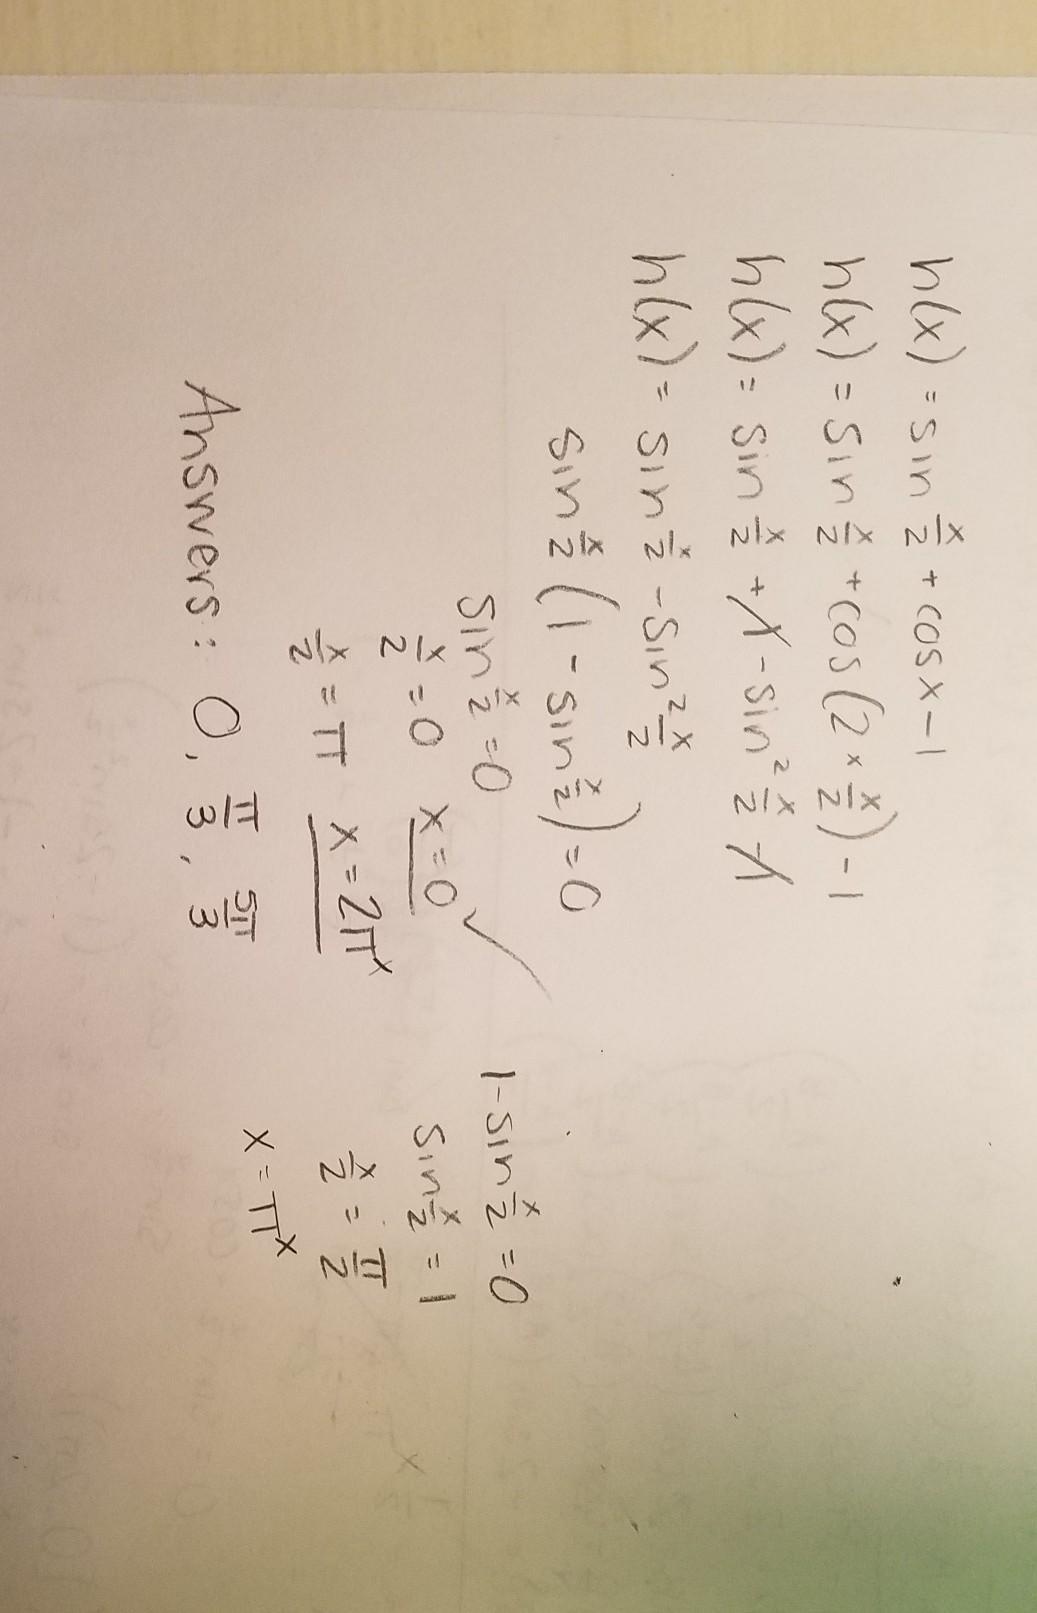 h(x) = sin x/2 + cosx - 1
h(x) = sin x/2 + cos(2 × x/2) - 1
h(x) = sin x/2 + 1 - sin² x/2 - 1
h(x) = sin x/2 - sin² x/2
sin x/2 (1 - sin x/2) = 0
sin x/2 = 0
x/2 = 0 x = 0 ✓
x/2 = π x = 2π ×
1 - sin x/2 = 0
sin x/2 = 1
x/2 = π/2
x = π ×
Answers: 0, π/3, 5π/3